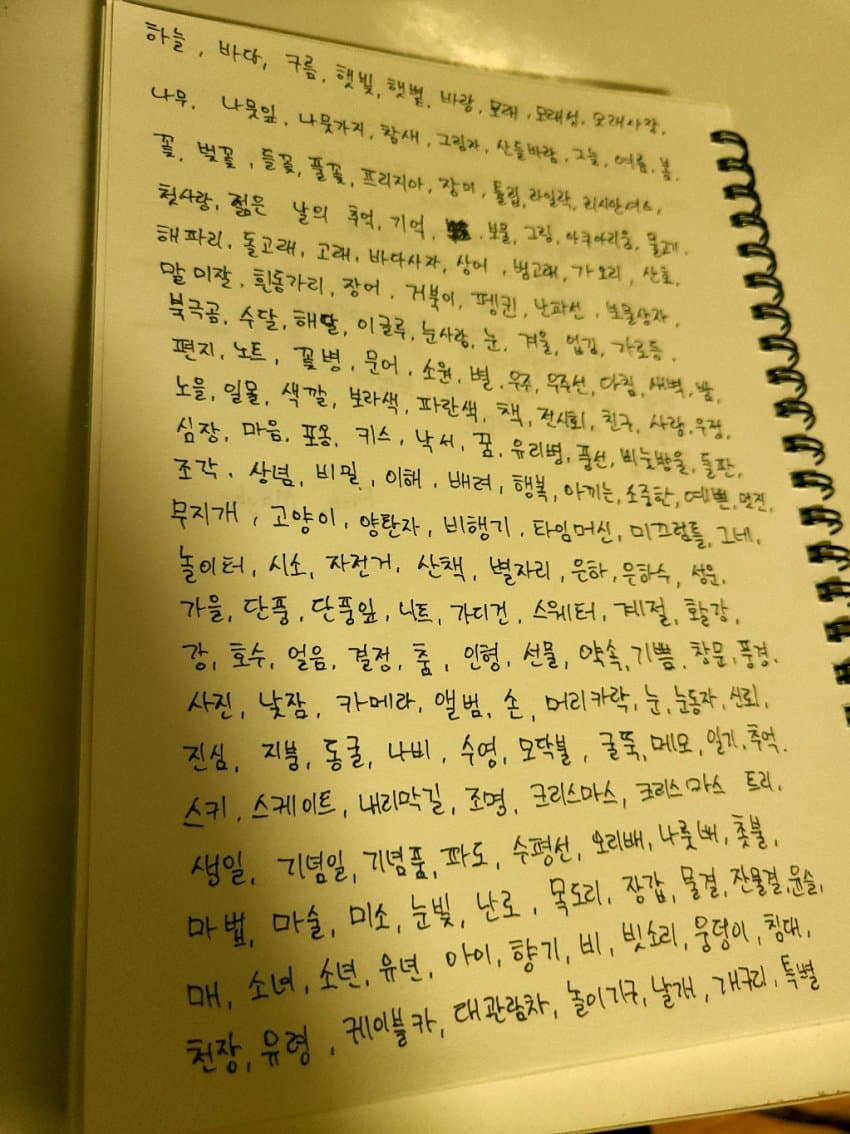 하늘, 바다, 구름, 햇빛, 햇볕, 바람, 모래, 모래성, 모래사장,
나무, 나뭇잎, 나뭇가지, 참새, 그림자, 산들바람, 그늘, 여름, 봄,
꽃, 벚꽃, 들꽃, 풀꽃, 프리지아, 장미, 튤립, 라일락, 리시안셔스,
첫사랑, 젊은 날의 추억, 기억, 보물, 그림, 아쿠아리움, 물고기,
해파리, 돌고래, 고래, 바다사자, 상어, 범고래, 가오리, 산호,
말미잘, 흰동가리, 장어, 거북이, 펭귄, 난파선, 보물상자,
북극곰, 수달, 해달, 이글루, 눈사람, 눈, 겨울, 입김, 가로등.
편지, 노트, 꽃병, 문어, 소원, 별, 우주, 우주선, 다짐, 새벽, 밤,
노을, 일몰, 색깔, 보라색, 파란색, 책, 전시회, 친구, 사랑, 우정,
심장, 마음, 포옹, 키스, 낙서, 꿈, 유리병, 풍선, 비눗방울, 들판,
조각, 상념, 비밀, 이해, 배려, 행복, 아끼는, 소중한, 예쁜, 멋진,
무지개, 고양이, 양탄자, 비행기, 타임머신, 미끄럼틀, 그네,
놀이터, 시소, 자전거, 산책, 별자리, 은하, 은하수, 성운,
가을, 단풍, 단풍잎, 니트, 가디건, 스웨터, 계절, 활강,
강, 호수, 얼음, 결정, 춤, 인형, 선물, 약속, 기쁨, 창문, 풍경.
사진, 낮잠, 카메라, 앨범, 손, 머리카락, 눈, 눈동자, 신뢰,
진심, 지붕, 동굴, 나비, 수영, 모닥불, 굴뚝, 메모, 일기, 추억.
스키, 스케이트, 내리막길, 조명, 크리스마스, 크리스마스 트리,
생일, 기념일, 기념품, 파도, 수평선, 오리배, 나룻배, 촛불,
마법, 마술, 미소, 눈빛, 난로, 목도리, 장갑, 물결, 잔물결, 윤슬,
매, 소녀, 소년, 유년, 아이, 향기, 비, 빗소리, 웅덩이, 침대,
천장, 유령, 케이블카, 대관람차, 놀이기구, 날개, 개구리, 특별